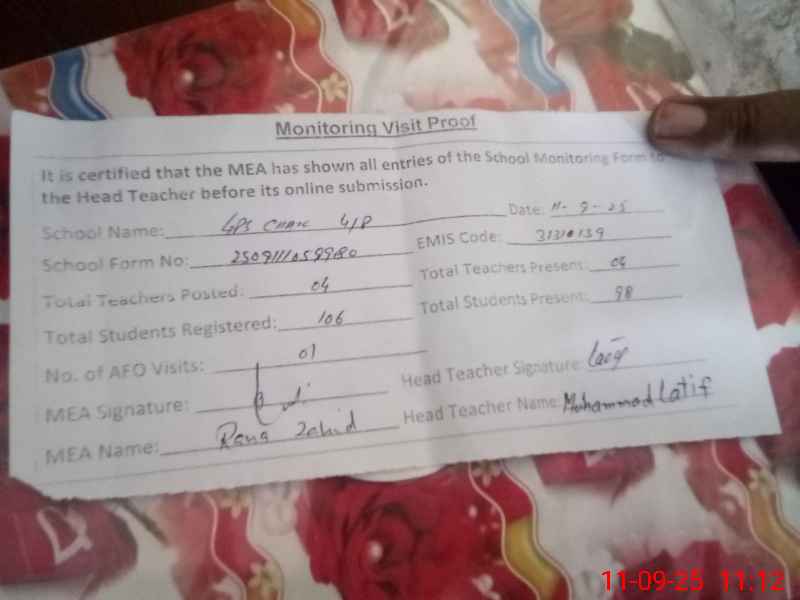 Monitoring Visit Proof
It is certified that the MEA has shown all entries of the School Monitoring Form to
the Head Teacher before its online submission.
School Name: GPS Chak 4/P Date: 11-9-25
School Form No: EMIS Code: 31310139
Total Teachers Posted: 04 Total Teachers Present: 04
Total Students Registered: 106 Total Students Present: 98
No. of AFO Visits: 01
MEA Signature: Head Teacher Signature:
MEA Name: Rana Zahid Head Teacher Name: Muhammad Latif
11-09-25 11:12